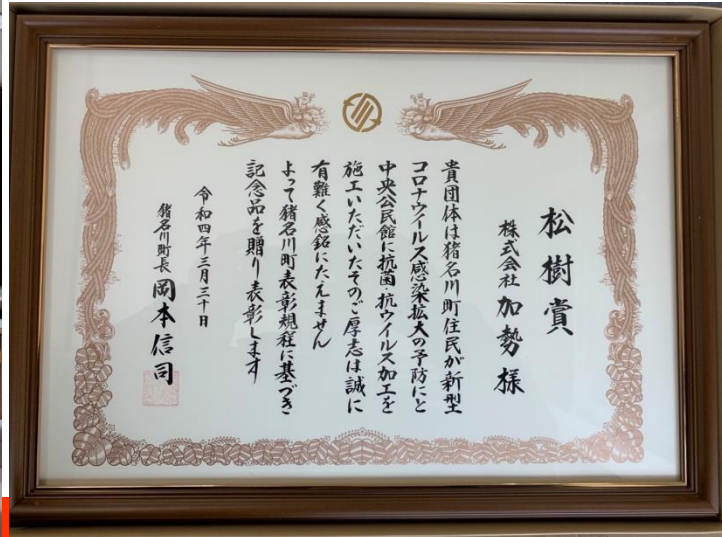 松樹賞
株式会社 加勢 様
貴団体は猪名川町住民が新型
コロナウイルス感染拡大の予防にと
中央公民館に抗菌・抗ウイルス加工を
施工いただいたそのご厚志は誠に
有難く感銘にたえません
よって猪名川町表彰規程に基づき
記念品を贈り表彰します
令和四年三月三十日
猪名川町長 岡本信司